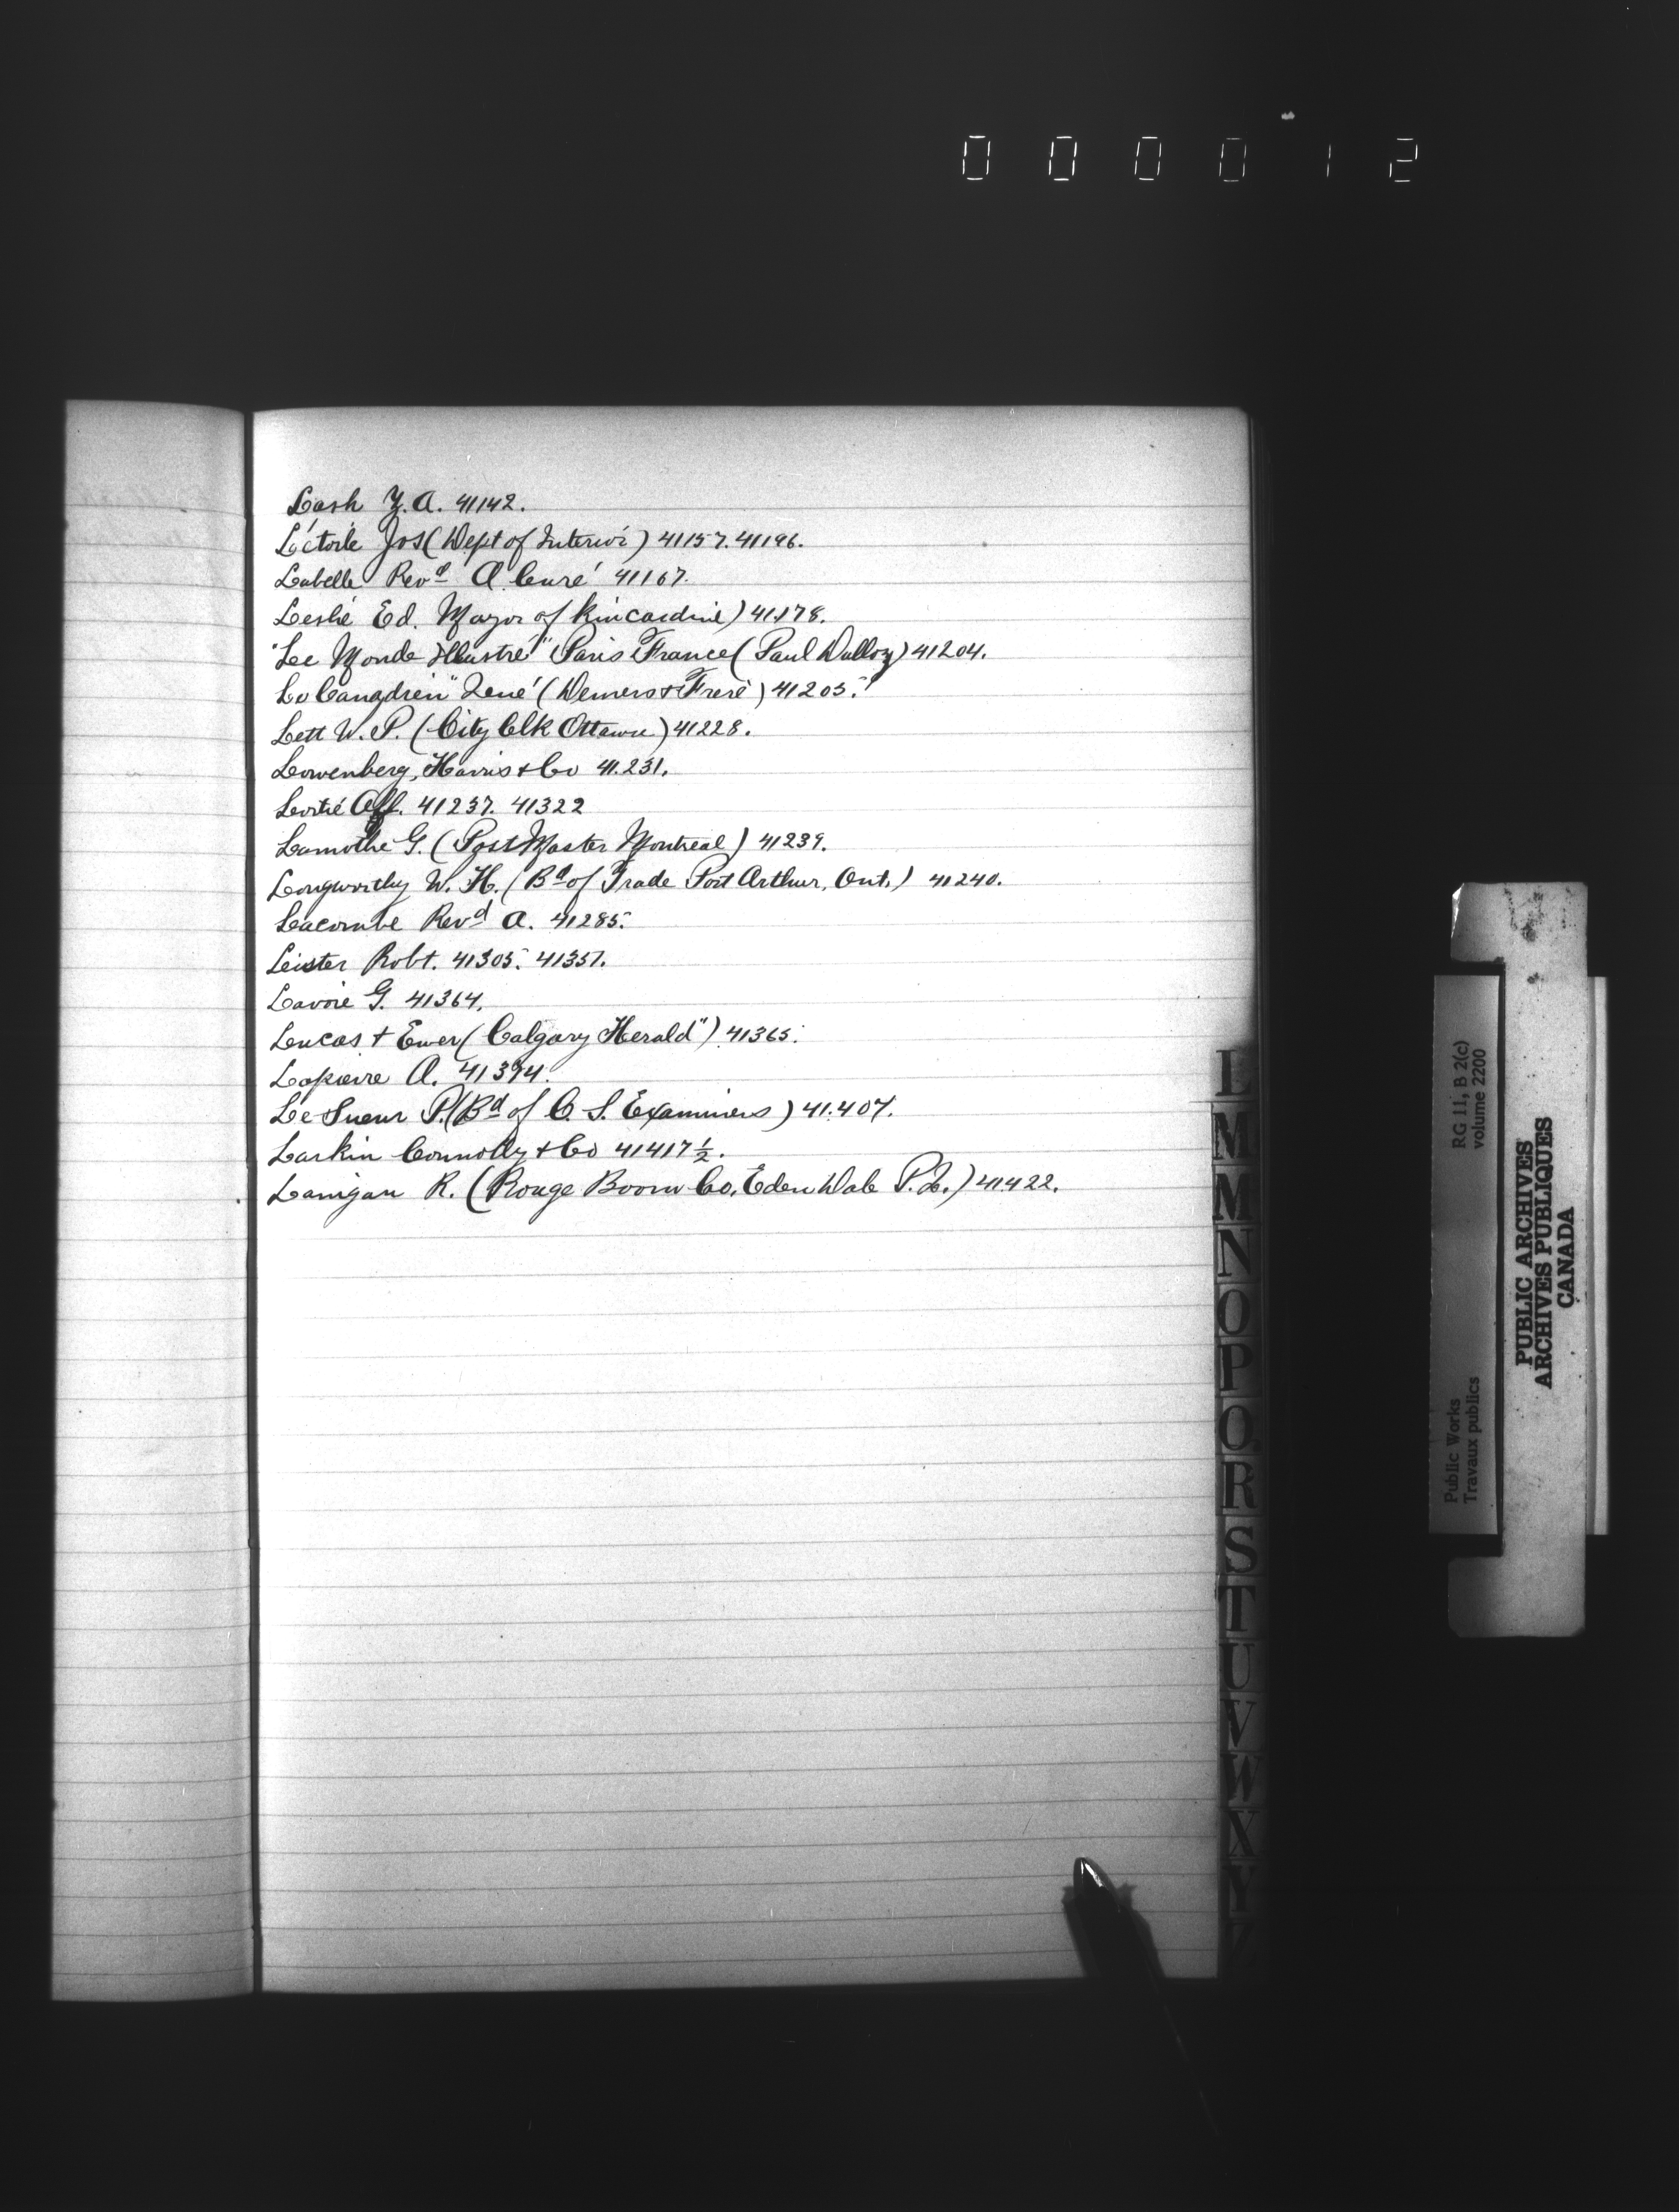 000012
Lash Z. A. 41142.
Létoile Jos (Dept of Interior) 41157. 41196.
Labelle Revd A Curé 41167.
Leslie Ed. Mayor of Kincardine) 41178.
"Le Monde Illustré" Paris France (Paul Dalloz) 41204.
Le Canadien" (Demers & Frere) 41205.
Lett W. P. (City Clk Ottawa) 41228.
Lowenberg, Harris & Co 41.231.
Alf. 41237. 41322
Lamothe G. (Post Master Montreal) 41239.
Longworthy W. H. (Bd of Trade Port Arthur, Ont.) 41240.
Lacombe Revd A. 41285.
Leister Robt. 41305. 41357.
Lavoie G. 41364.
Lucas & Ewer (Calgary Herald") 41365.
Lapierre A. 41394.
Le Sueur P. (Bd of C. S. Examiners) 41.407.
Larkin Connolly & Co 41417½.
Lanigan R. (Rouge Boom Co. Eden Dale P.Q.) 41422.
L
M
M
N
O
P
Q
R
S
T
U
V
W
X
Y
Z
Public Works
Travaux publics
RG 11, B 2(c)
volume 2200
PUBLIC ARCHIVES
ARCHIVES PUBLIQUES
CANADA